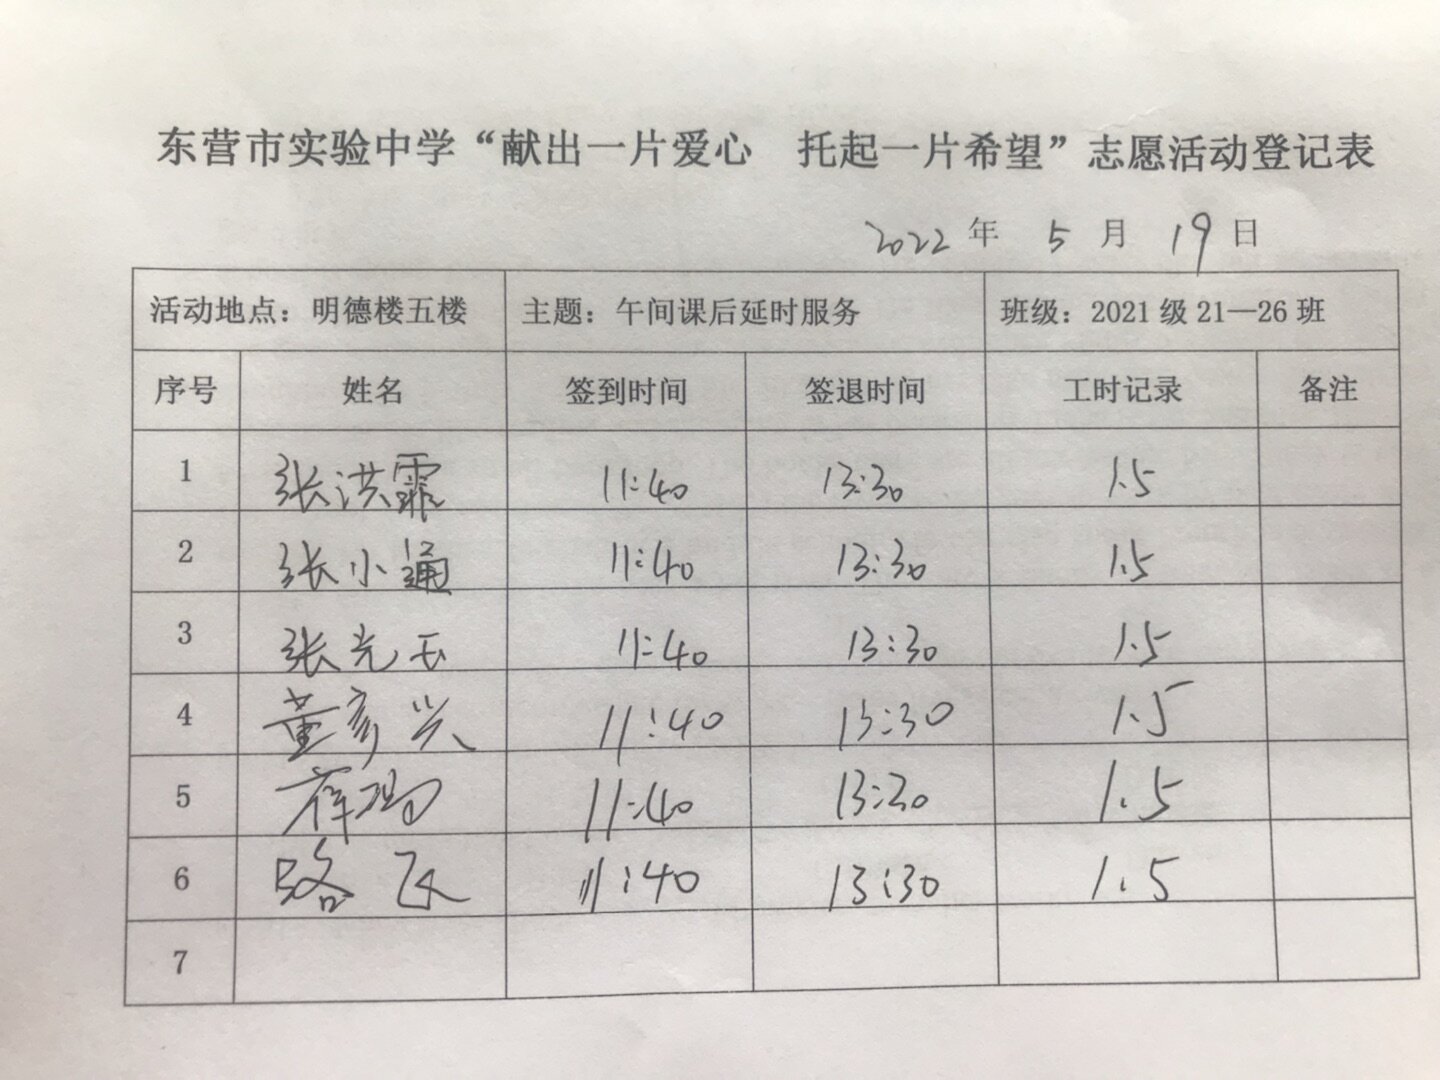 东营市实验中学“献出一片爱心 托起一片希望”志愿活动登记表
2022年 5月 19日
活动地点：明德楼五楼 主题：午间课后延时服务 班级：2021级21—26班
序号 姓名 签到时间 签退时间 工时记录 备注
1 张洪霏 11:40 13:30 1.5
2 张小通 11:40 13:30 1.5
3 张光玉 11:40 13:30 1.5
4 董彦兴 11:40 13:30 1.5
5 11:40 13:30 1.5
6 路飞 11:40 13:30 1.5
7